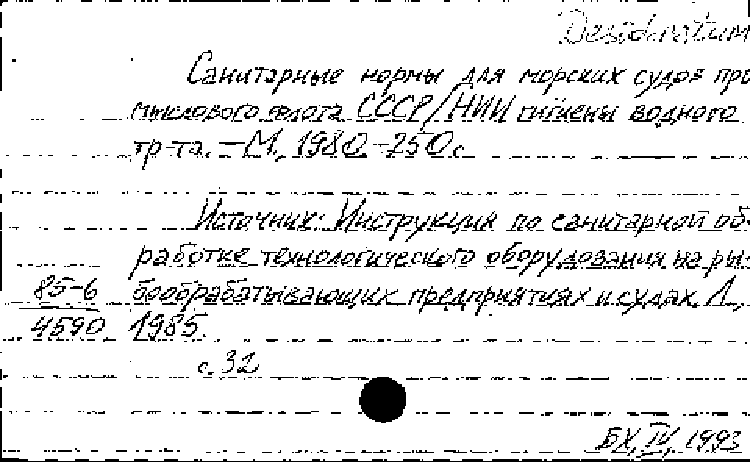 Desideratum
Санитарные нормы для морских судов про
мыслового флота СССР/НИИ гигиены водного
тр-та. – М., 1980. – 250 с.
Источник: Инструкция по санитарной об-
работке технологического оборудования на ры-
85-6 бообрабатывающих предприятиях и судах. Л.,
4590 1985.
с. 32
БХ, IV, 1993